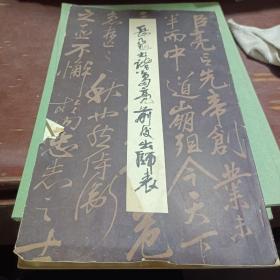 岳飛書諸葛亮前後出師表
臣亮言先帝創業未
半而中道崩殂今天下
危
秋也然侍衛
之臣不懈於内忠志之士